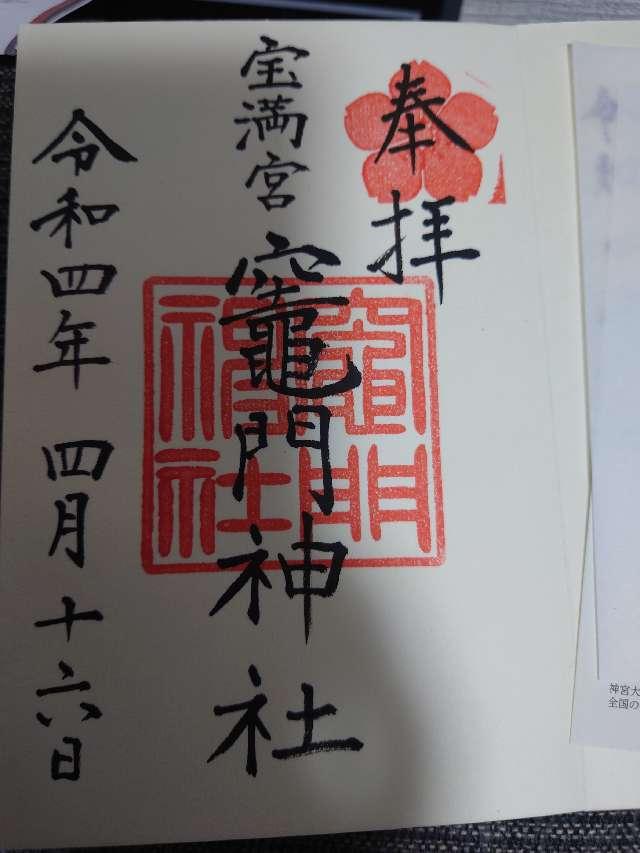 奉拝
宝満宮
竈門神社
竈門
神社
令和四年 四月 十六日
神宮大
全国の